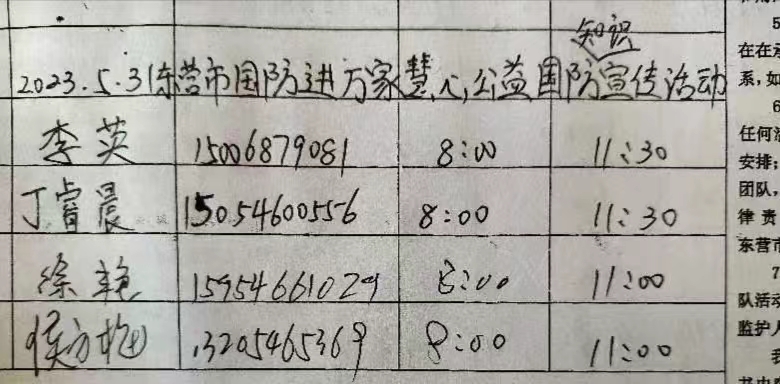 知识
2023.5.31东营市国防进万家慧心公益国防宣传活动
李英 15006879081 8:00 11:30
丁睿晨 15054600556 8:00 11:30
徐艳 15954661029 8:00 11:00
侯方 13205465369 8:00 11:00
5
在在
系,如
6
任何
安排;
团队,
律责
东营市
7
队活动
监护人